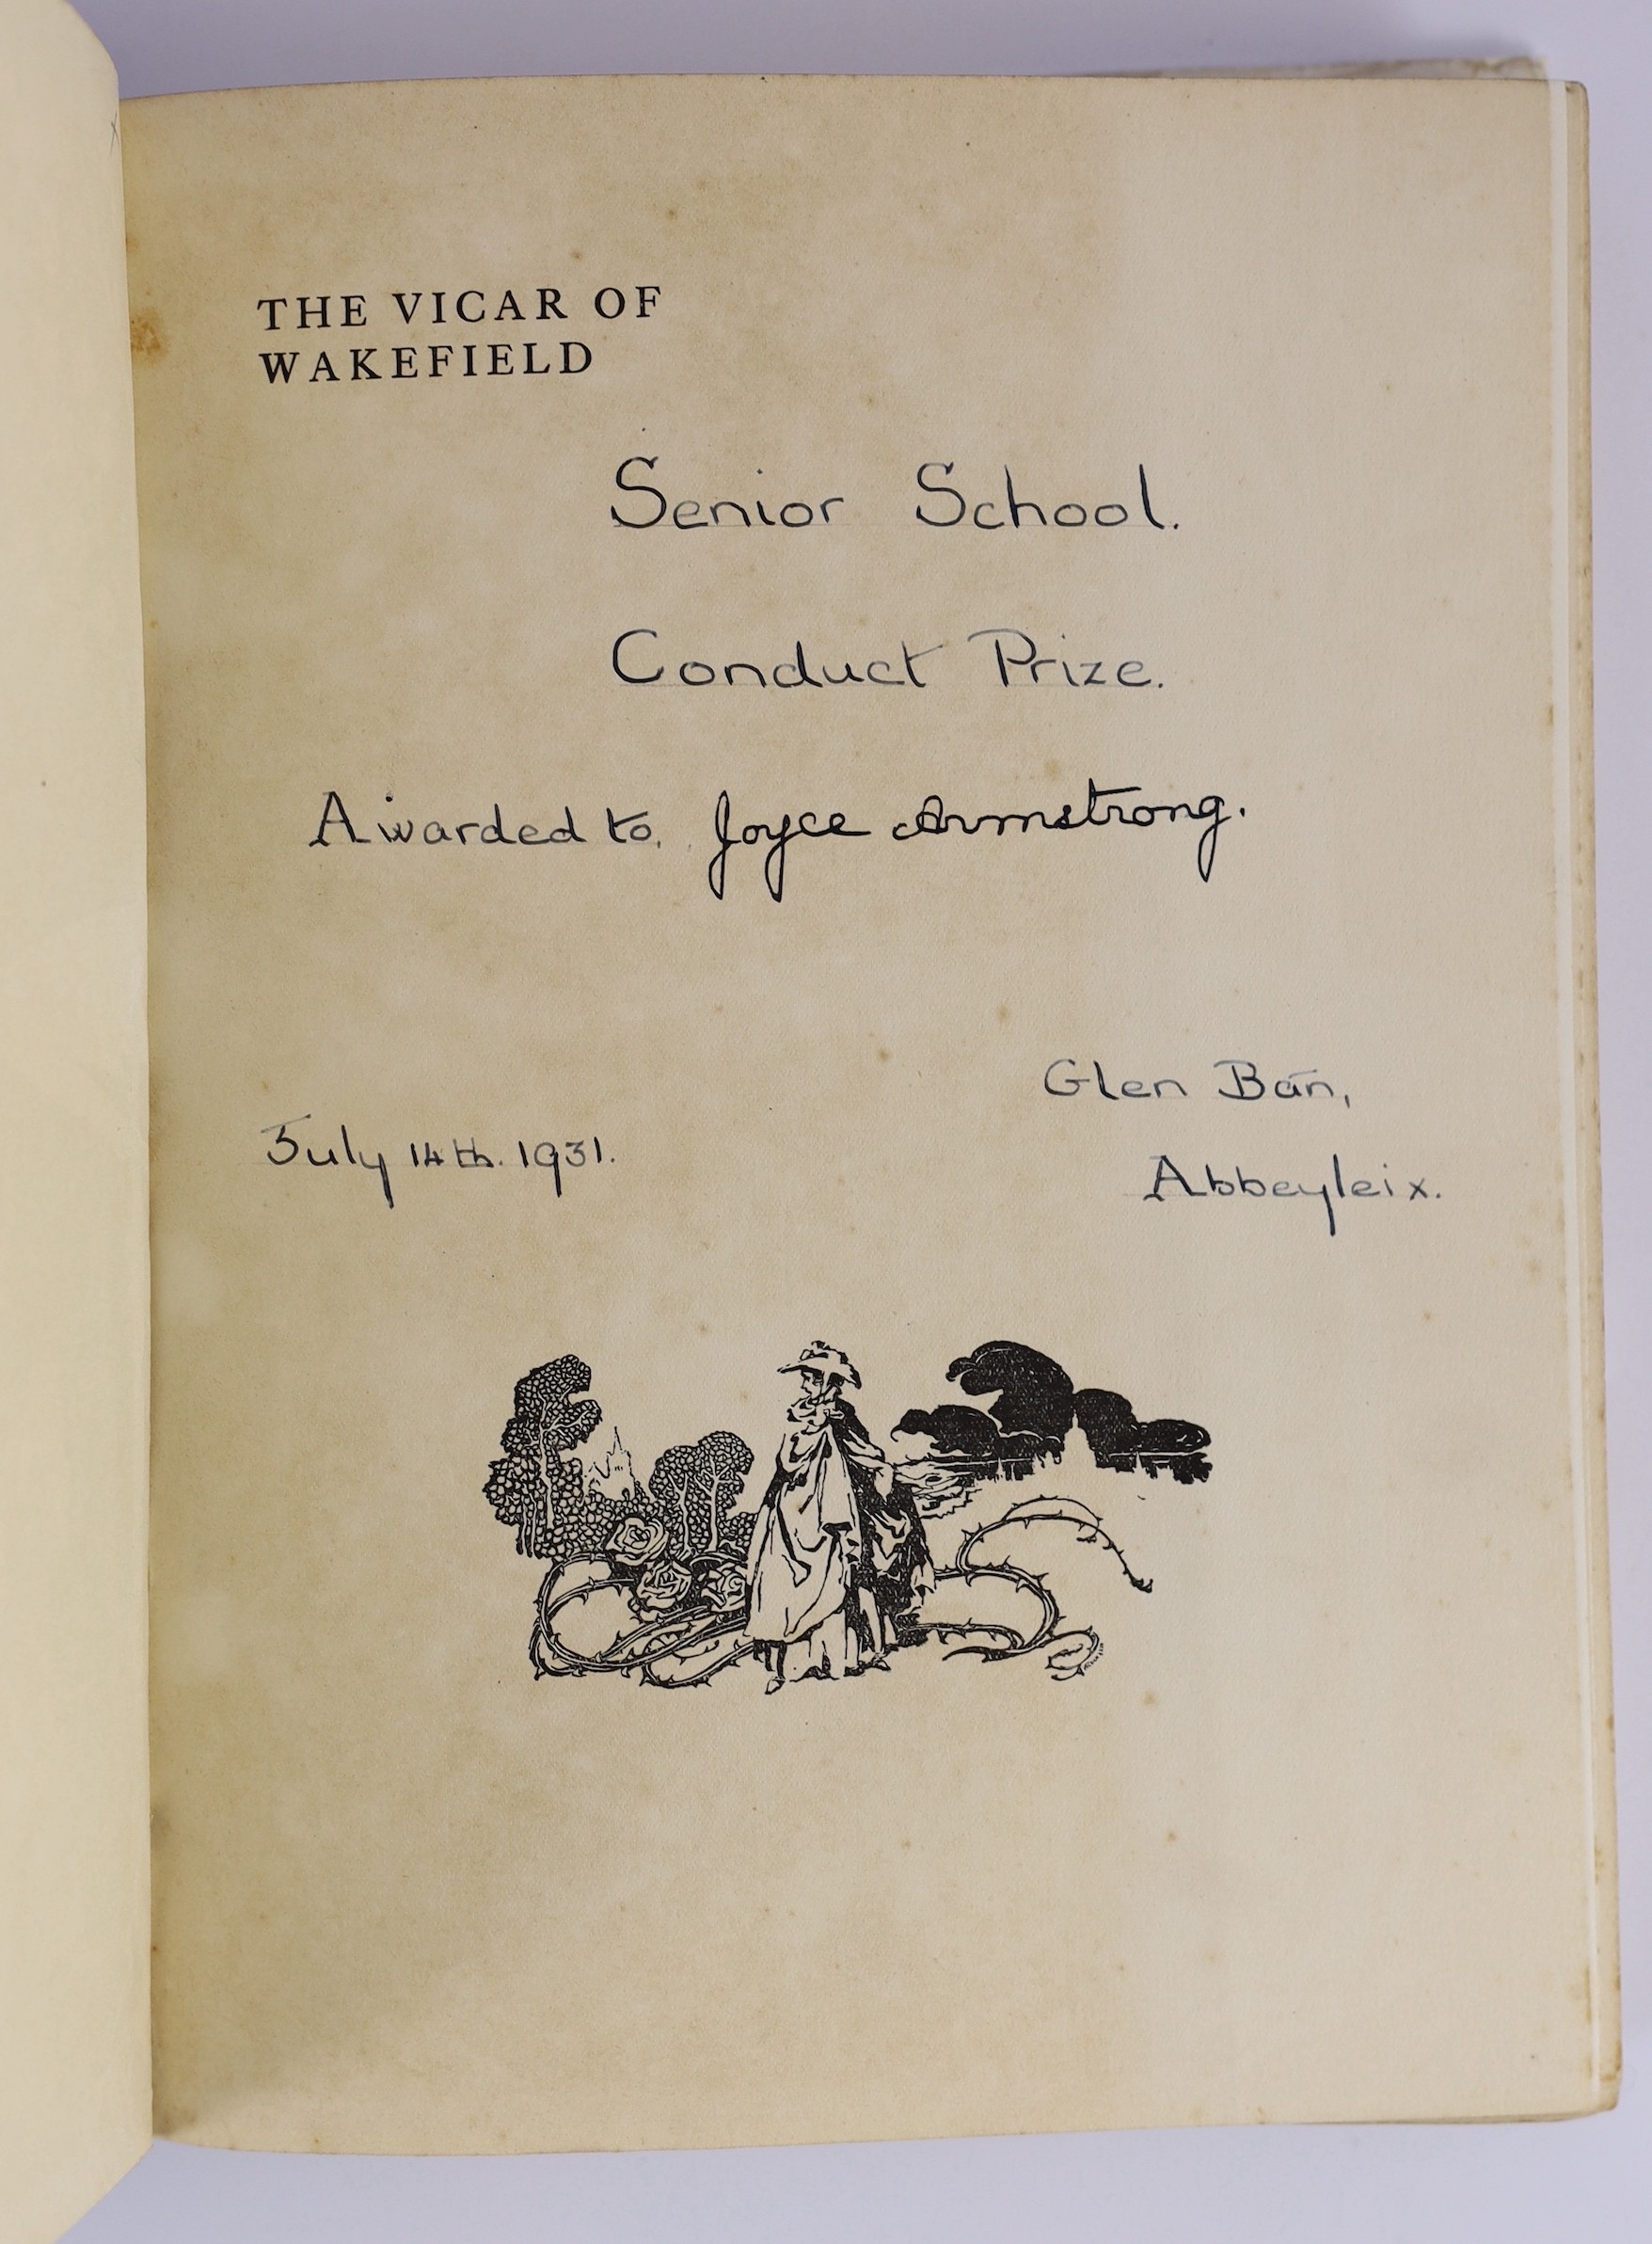 THE VICAR OF
WAKEFIELD
Senior School.
Conduct Prize.
Awarded to. Joyce Armstrong.
Glen Bán,
July 14th. 1931.
Abbeyleix.